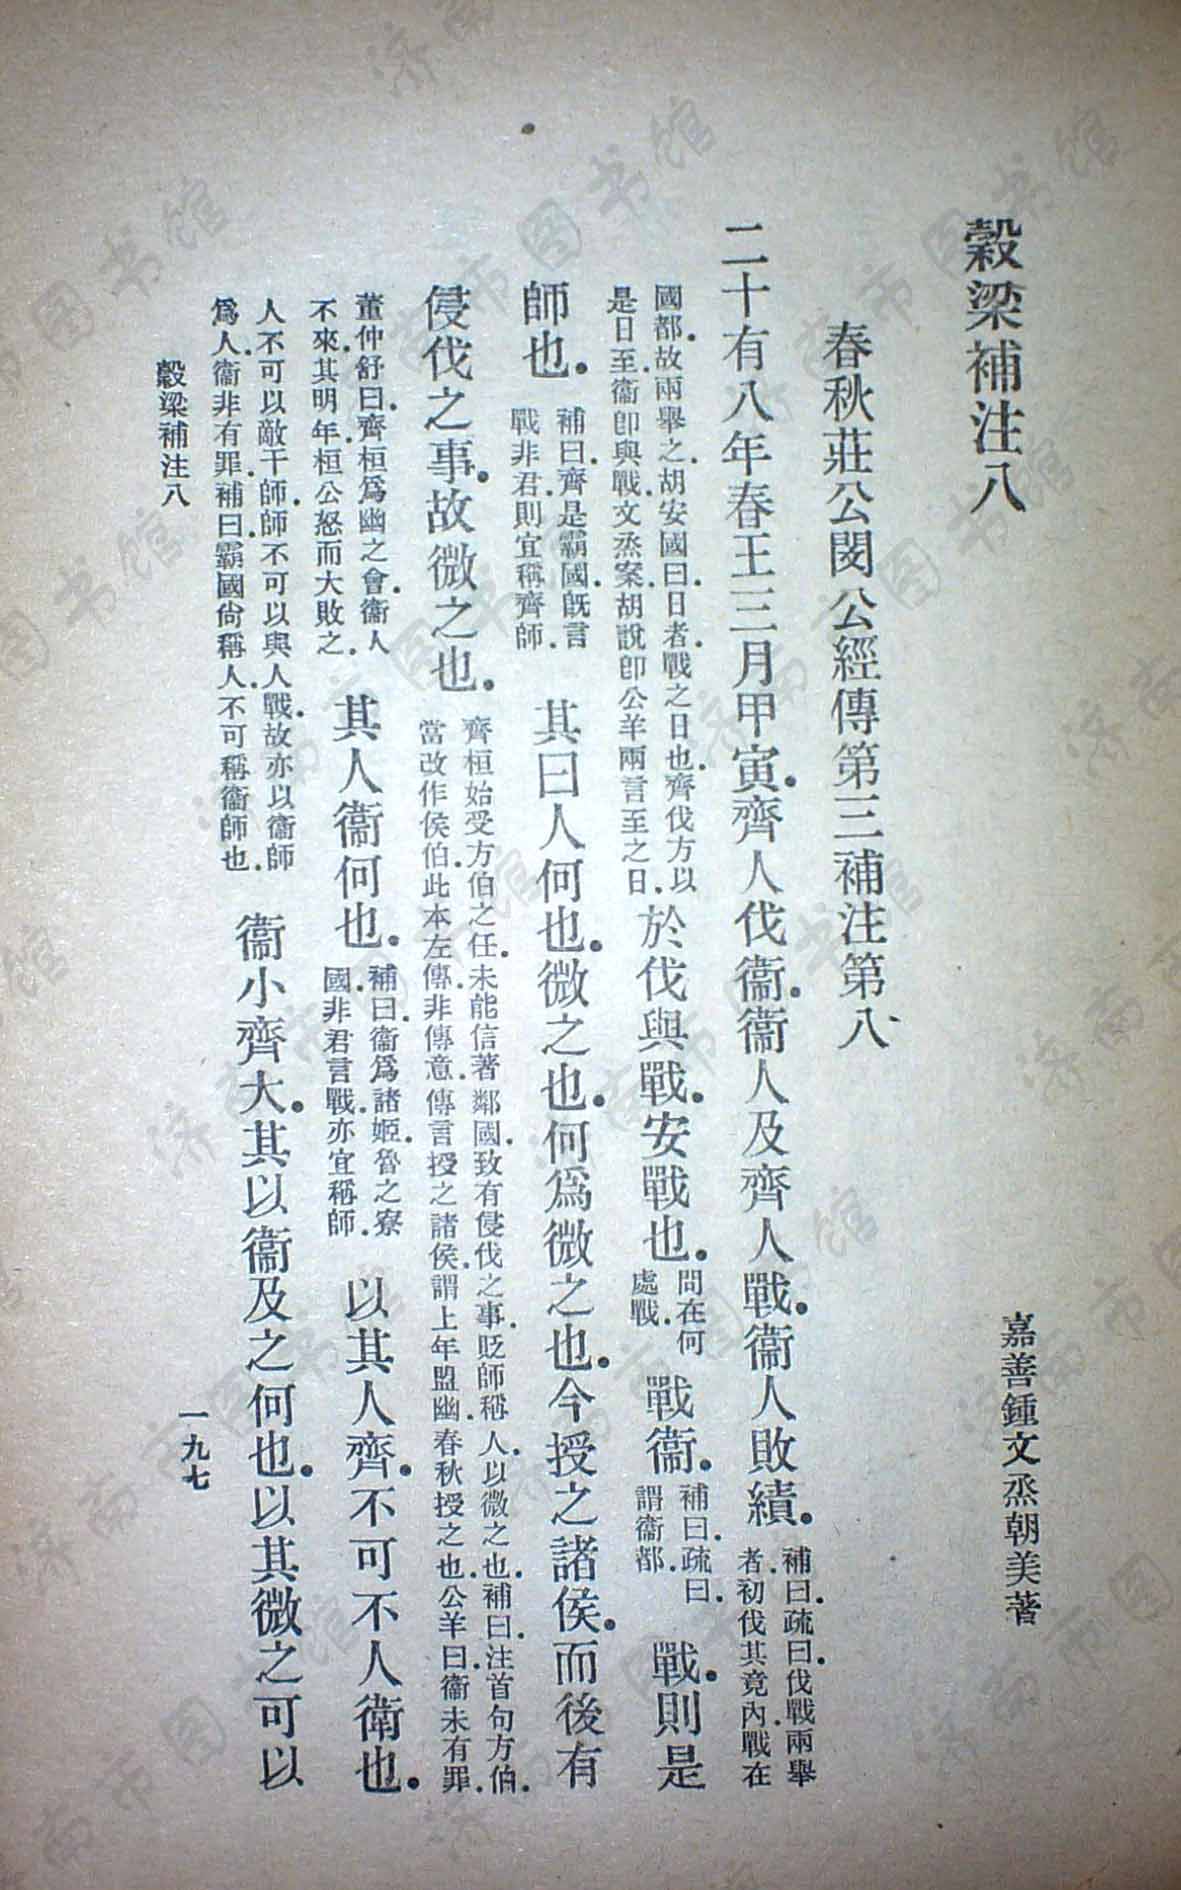 穀梁補注八
嘉善鍾文烝朝美著
春秋莊公閔公經傳第三補注第八
二十有八年春王三月甲寅.齊人伐衞.衞人及齊人戰.衞人敗績.
補曰.疏曰.伐戰兩舉
者.初伐其竟內.戰在
國都.故兩舉之.胡安國曰.日者.戰之日也.齊伐方以
是日至.衞卽與戰.文烝案.胡說卽公羊兩言至之日.
於伐與戰.安戰也.
問在何
處戰.
戰衞.
補曰.疏曰.
謂衞都.
戰.則是
師也.
補曰.齊是霸國.旣言
戰非君.則宜稱齊師.
其曰人何也.微之也.何爲微之也.今授之諸侯.而後有
侵伐之事.故微之也.
齊桓始受方伯之任.未能信著鄰國.致有侵伐之事.貶師稱人.以微之也.補曰.注首句方伯.
當改作侯伯.此本左傳.非傳意.傳言授之諸侯.謂上年盟幽.春秋授之也.公羊曰.衞未有罪.
董仲舒曰.齊桓爲幽之會.衞人
不來.其明年.桓公怒而大敗之.
其人衞何也.
補曰.衞爲諸姬.魯之寮
國.非君言戰.亦宜稱師.
以其人齊.不可不人衛也.
人不可以敵于師.師不可以與人戰.故亦以衞師
爲人.衞非有罪.補曰.霸國尙稱人.不可稱衞師也.
衞小齊大.其以衞及之何也.以其微之可以
穀梁補注八
一九七
济南市图书馆